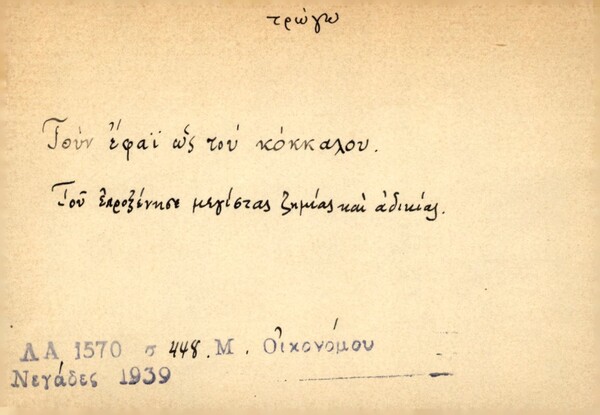 τρώγω
Τοὺν ἔφαϊ ὣς τοὺ κόκκαλου.
Τοῦ ἐπροξένησε μεγίστας ζημίας καὶ ἀδικίας.
ΛΑ 1570 σ 448. Μ. Οἰκονόμου
Νεγάδες 1939